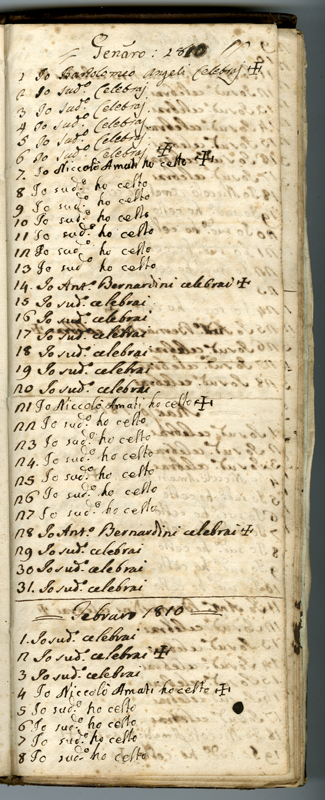 Genaro: 1810
1 Io Bartolomeo Angeli Celebraj ✠
2 Io Sud.º Celebraj
3 Io Sud.º Celebraj
4 Io Sud.º Celebraj
5 Io Sud.º Celebraj
6 Io Sud.º Celebraj ✠
7. Io Niccolò Amati ho celto ✠
8 Io sud.º ho celto
9 Io sud.º ho celto
10 Io sud.º ho celto
11 Io sud.º ho celto
12 Io sud.º ho celto
13 Io sud.º ho celto
14. Io Ant.º Bernardini celebrai ✠
15 Io sud.º celebrai
16 Io sud.º celebrai
17 Io sud.º celebrai
18 Io sud.º celebrai
19 Io sud.º celebrai
20 Io sud.º celebrai
21 Io Niccolò Amati ho celto ✠
22 Io sud.º ho celto
23 Io sud.º ho celto
24. Io sud.º ho celto
25 Io sud.º ho celto
26 Io sud.º ho celto
27 Io sud.º ho celto
28 Io Ant.º Bernardini celebrai ✠
29 Io sud.º celebrai
30 Io sud.º celebrai
31. Io sud.º celebrai
Febraro 1810
1. Io sud.º celebrai
2 Io sud.º celebrai ✠
3 Io sud.º celebrai
4 Io Niccolò Amati ho celto ✠
5 Io sud.º ho celto
6 Io sud.º ho celto
7 Io sud.º ho celto
8 Io sud.º ho celto